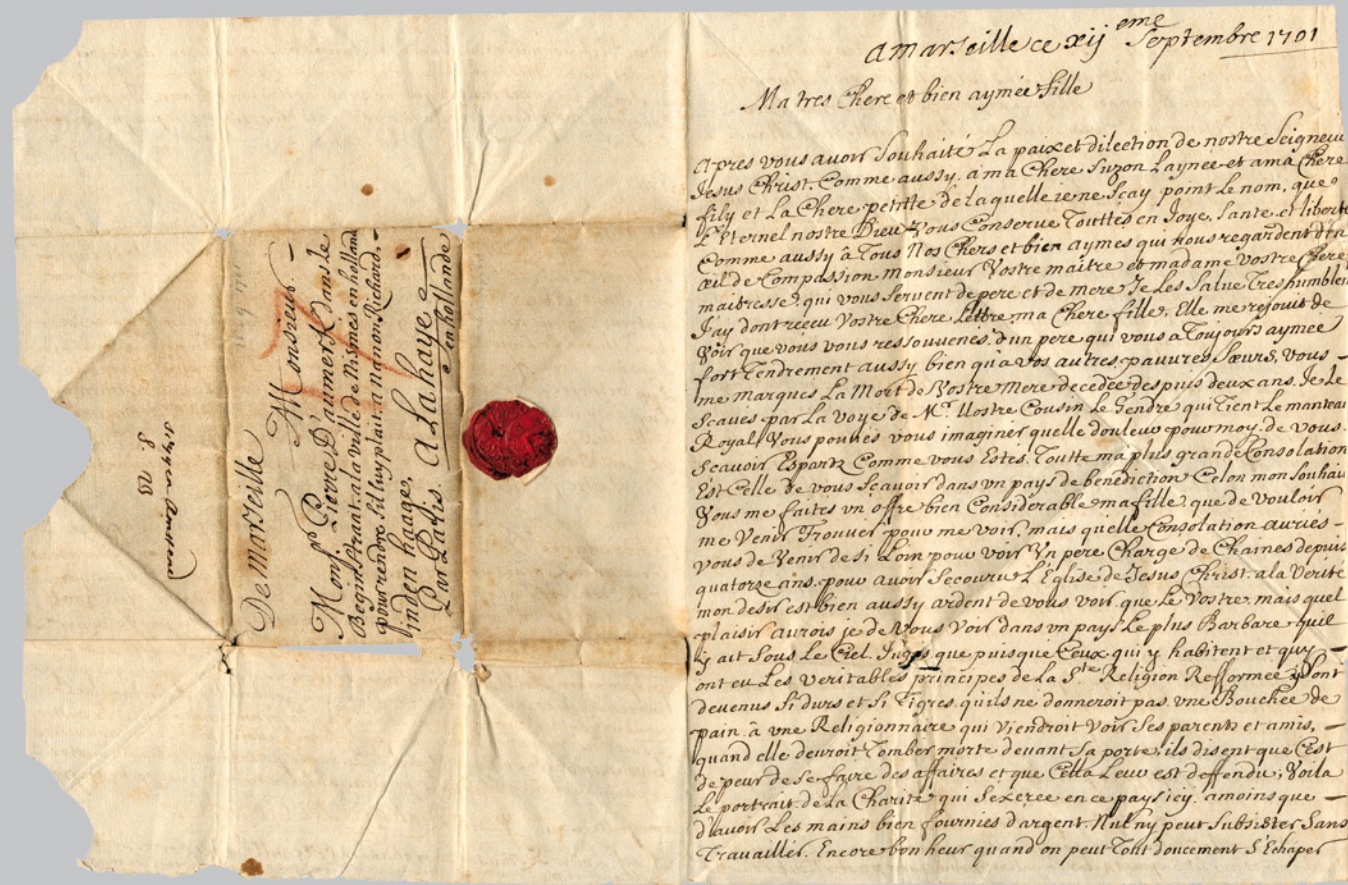 De Marseille
Monsieur
Mons.r Pierre D'aumerk dans le
Begin strant a la ville de Nismes en hollande
pour rendre sil luy plait. a Nanon Richard,
inden haage,
Par Paris. A La haye
en hollande
A Marseille ce xij eme Septembre 1701
Ma tres Chere et bien aymée fille
Apres vous avoir souhaité La paix et dilection de nostre Seigneur
Jesus Christ. Comme aussy. a ma Chere Suzon Laynee et a ma Chere
fily et La Chere petitte de laquelle ie ne Sçay point Le nom, que
L'Eternel nostre Dieu Vous Conserve Touttes en Joye, Sante, et liberte
Comme aussy â Tous Nos Chers et bien aymes qui nous regardent d'un
œil de Compassion Monsieur Vostre maitre et madame vostre Chere
maitresse, qui vous servent de pere et de mere Je Les Salue Tres humblem
J'ay dont receu Vostre Chere Lettre, ma Chere fille, Elle me rejouit de
Voir que vous vous ressouvenés d'un pere qui vous a Toujours aymée
fort Tendrement aussy bien qu'a vos autres pauvres Sœurs, vous
me marqués La Mort de Vostre Mere decedée despuis deux ans. Je Le
Scavés par La Voye de Mr. Nostre Cousin Le Gendre qui Tient Le manteau
Royal, Vous pouvés vous imaginer quelle douleur pour moy. de vous
Scavoir Espartz Comme vous Estes. Toutte ma plus grande Consolation
Est Celle de vous Sçavoir dans un pays de benediction Celon mon Souhait
Vous me faites un offre bien Considerable ma fille, que de vouloir
me Venir Trouver pour me voir, mais quelle Consolation auriés
vous de Venir de Si Loin pour voir Un pere Chargé de Chaines depuis
quatorze ans. pour avoir Secouru L'Eglise de Jesus Christ. a la Verité
mon desir est bien aussy ardent de vous voir que Le Vostre. mais quel
plaisir aurois je de Vous Voir dans un pays Le plus Barbare quil
y ait Sous Le Ciel. Jugés que puisque Ceux qui y habitent et quy
ont eu Les veritables principes de La Ste Religion Refformée y Sont
devenus Si durs et Si Tigres quils ne donneroit pas une Bouchée de
pain. â une Religionnaire qui viendroit voir Ses parents et amis,
quand elle devroit Tomber morte devant Sa porte, ils disent que C'est
de peur de Se faire des affaires et que Cella Leur est deffendu; Voila
Le portrait de La Charité qui Sexerce en ce pays icy. amoins que
d'avoir Les mains bien fournies d'argent. Nul ny peut Subsister Sans
Travailler. Encore bon heur quand on peut Tout doucement S'Echaper